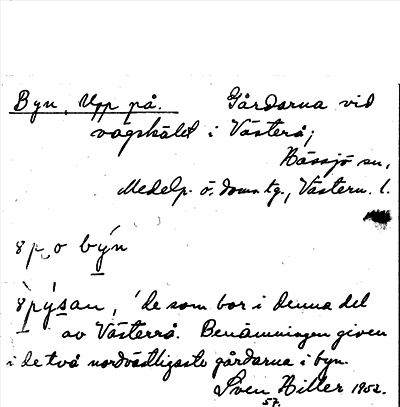 Byn, Upp på. Gårdarna vid
vägskälet i Västerå;
Hässjö sn,
Medelp. ö. doms. tg., Västern. l.
8p o by´n
8py´san, 'de som bor i denna del
av Västerrå. Benämningen given
i de två nordvästligaste gårdarna i byn.
Sven Hiller 1952.
57.